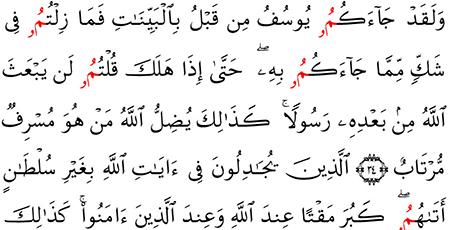 وَلَقَدْ جَآءَكُمُۥ يُوسُفُ مِن قَبْلُ بِالْبَيِّنَٰتِ فَمَا زِلْتُمُۥ فِى
شَكٍّ مِّمَّا جَآءَكُمُۥ بِهِۦۖ حَتَّىٰٓ إِذَا هَلَكَ قُلْتُمُۥ لَن يَبْعَثَ
اللَّهُ مِنۢ بَعْدِهِۦ رَسُولًاۚ كَذَٰلِكَ يُضِلُّ اللَّهُ مَنْ هُوَ مُسْرِفٌ
مُّرْتَابٌ ۝٣٤ الَّذِينَ يُجَٰدِلُونَ فِىٓ ءَايَٰتِ اللَّهِ بِغَيْرِ سُلْطَٰنٍ
أَتَىٰهُمُۥۖ كَبُرَ مَقْتًا عِندَ اللَّهِ وَعِندَ الَّذِينَ ءَامَنُوا۟ۚ كَذَٰلِكَ